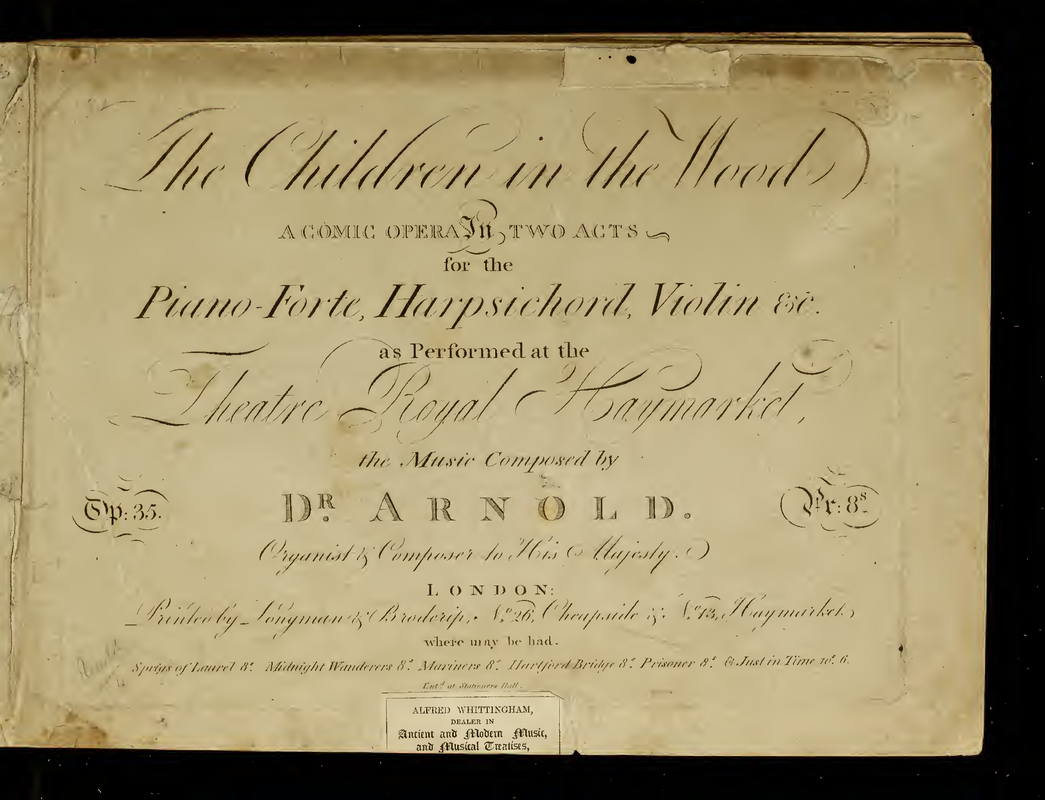 The Children in the Wood
A COMIC OPERA In TWO ACTS
for the
Piano-Forte, Harpsichord, Violin &c.
as Performed at the
Theatre Royal Haymarket,
the Music Composed by
Op: 35.
DR. ARNOLD.
Pr: 8s.
Organist & Composer to His Majesty.
LONDON:
Printed by Longman & Broderip, No. 26, Cheapside & No. 13, Haymarket,
where may be had.
Sprigs of Laurel 8s. Midnight Wanderers 8s. Mariners 8s. Hartford Bridge 8s. Prisoner 8s. & Just in Time 10s. 6.
Entd. at Stationers Hall.
ALFRED WHITTINGHAM,
DEALER IN
Ancient and Modern Music,
and Musical Treatises,